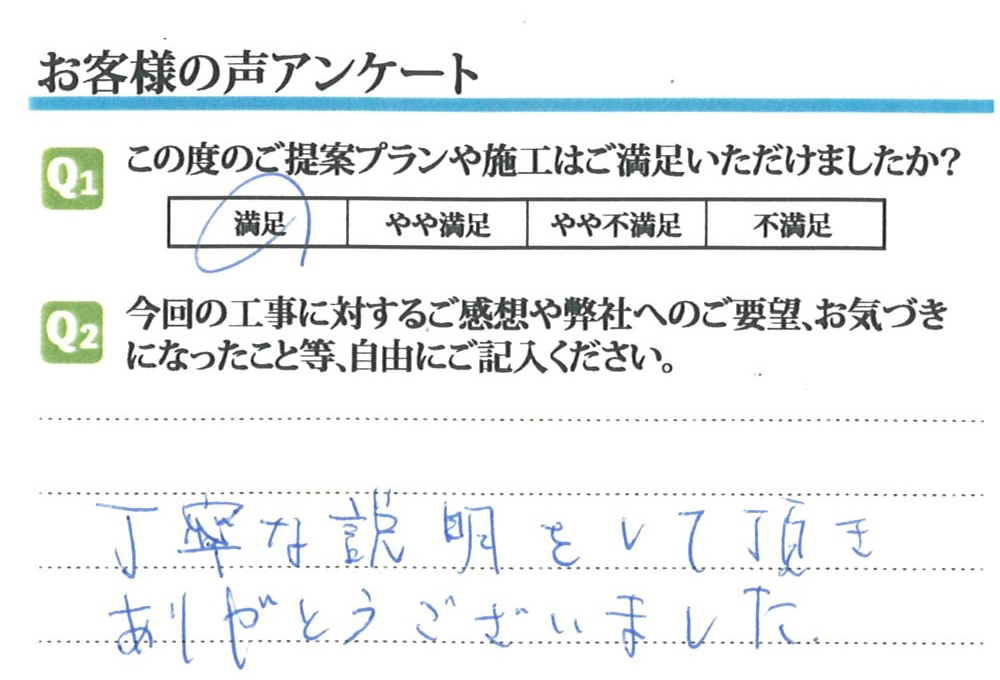 お客様の声アンケート
Q1 この度のご提案プランや施工はご満足いただけましたか?
満足 やや満足 やや不満足 不満足
Q2 今回の工事に対するご感想や弊社へのご要望、お気づき
になったこと等、自由にご記入ください。
丁寧な説明をして頂き
ありがとうございました.